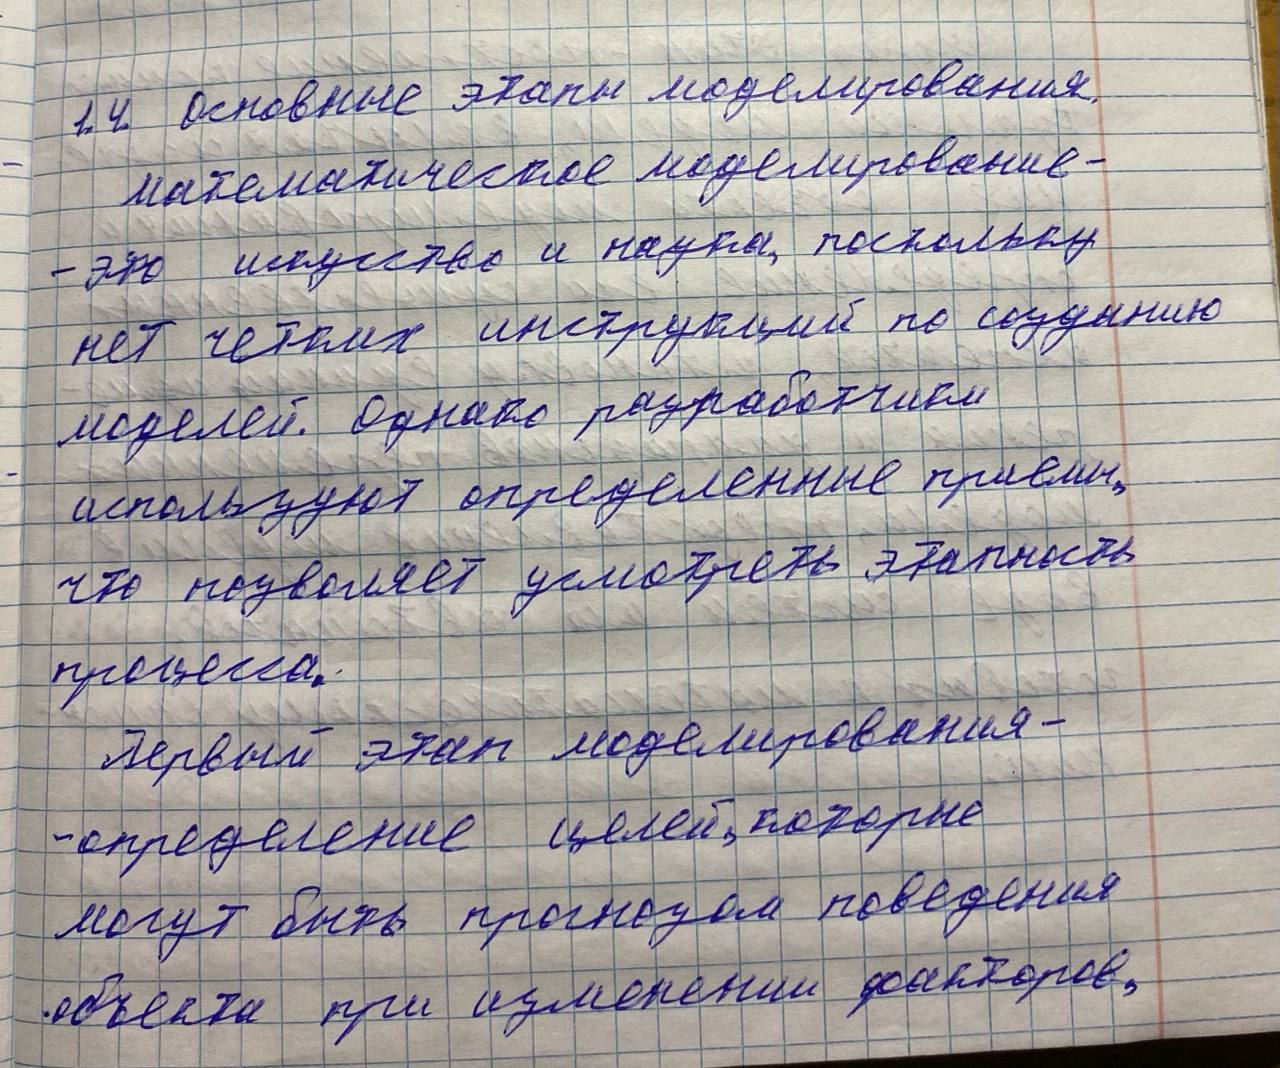 1.4. Основные этапы моделирования.
Математическое моделирование-
-это искусство и наука, поскольку
нет четких инструкций по созданию
моделей. Однако разработчики
используют определенные приемы,
что позволяет усмотреть этапность
процесса.
Первый этап моделирования-
-определение целей, которые
могут быть прогнозом поведения
объекта при изменении факторов,